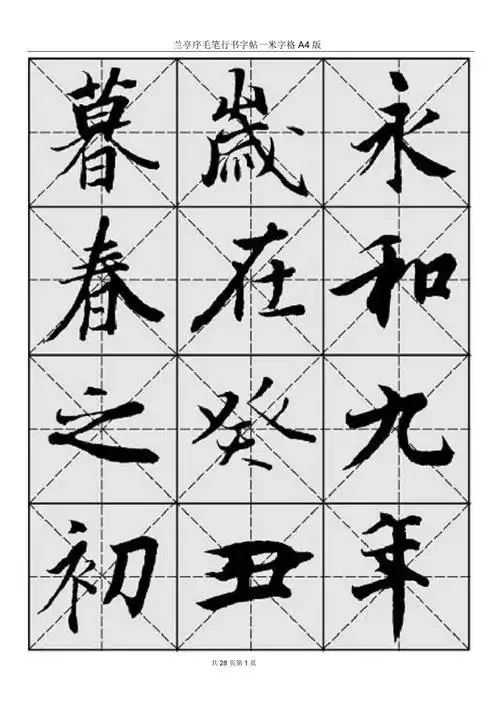 兰亭序毛笔行书字帖一米字格 A4 版
永和九年
歲在癸丑
暮春之初
共 28 页第 1 页